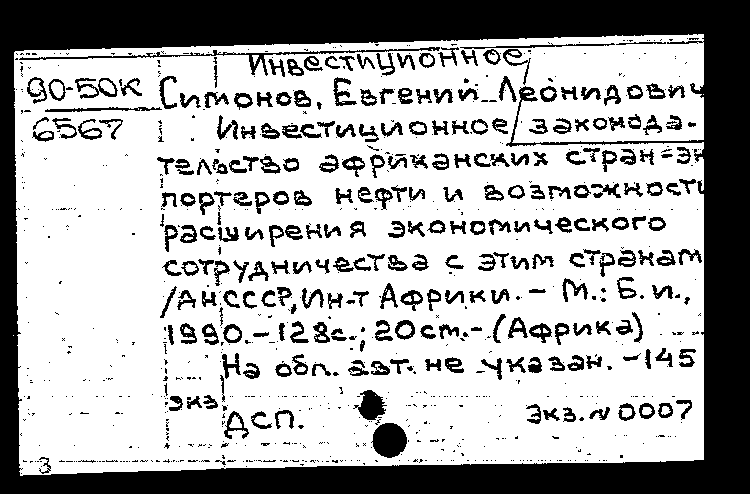 Инвестиционное
90-50к
Симонов, Евгений Леонидович
6567
Инвестиционное законода-
тельство африканских стран-эк
портеров нефти и возможности
расширения экономического
сотрудничества с этим странам
/АН СССР, Ин-т Африки. - М.: Б. и.,
1990. - 128с.; 20 см. - (Африка)
На обл. авт. не указан. - 145
экз.
ДСП. Экз. N 0007
3